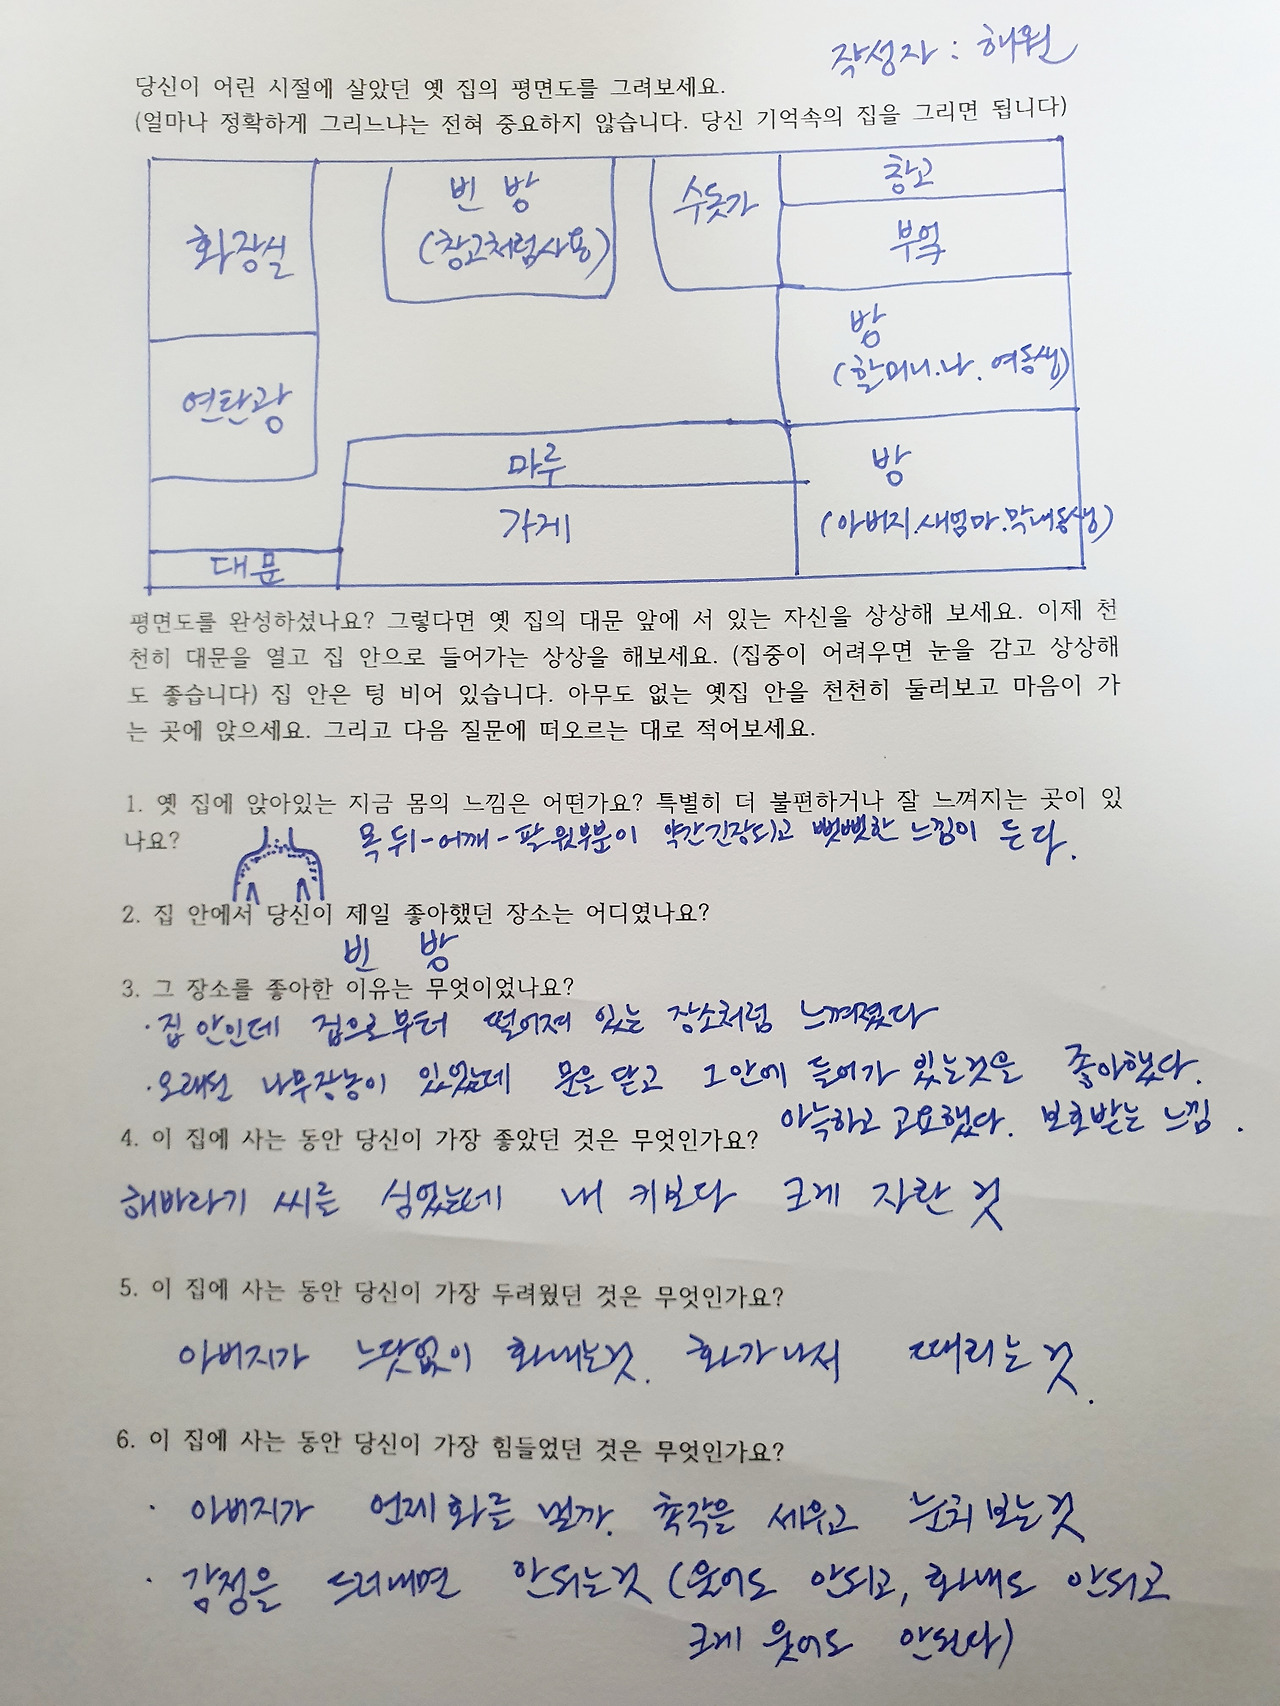 작성자 : 해원
당신이 어린 시절에 살았던 옛 집의 평면도를 그려보세요.
(얼마나 정확하게 그리느냐는 전혀 중요하지 않습니다. 당신 기억속의 집을 그리면 됩니다)
화장실
빈 방
(창고처럼사용)
수돗가
창고
부엌
방
(할머니.나.여동생)
연탄광
마루
방
(아버지.새엄마.막내동생)
가게
대문
평면도를 완성하셨나요? 그렇다면 옛 집의 대문 앞에 서 있는 자신을 상상해 보세요. 이제 천
천히 대문을 열고 집 안으로 들어가는 상상을 해보세요. (집중이 어려우면 눈을 감고 상상해
도 좋습니다) 집 안은 텅 비어 있습니다. 아무도 없는 옛집 안을 천천히 둘러보고 마음이 가
는 곳에 앉으세요. 그리고 다음 질문에 떠오르는 대로 적어보세요.
1. 옛 집에 앉아있는 지금 몸의 느낌은 어떤가요? 특별히 더 불편하거나 잘 느껴지는 곳이 있
나요?
목 뒤-어깨-팔 윗부분이 약간긴장되고 뻣뻣한 느낌이 든다.
2. 집 안에서 당신이 제일 좋아했던 장소는 어디였나요?
빈 방
3. 그 장소를 좋아한 이유는 무엇이었나요?
·집안인데 집으로부터 떨어져 있는 장소처럼 느껴졌다
·오래된 나무장농이 있었는데 문을 닫고 그안에 들어가 있는것을 좋아했다.
아늑하고 고요했다. 보호받는 느낌.
4. 이 집에 사는 동안 당신이 가장 좋았던 것은 무엇인가요?
해바라기 씨를 심었는데 내 키보다 크게 자란 것
5. 이 집에 사는 동안 당신이 가장 두려웠던 것은 무엇인가요?
아버지가 느닷없이 화내는것. 화가나서 때리는 것.
6. 이 집에 사는 동안 당신이 가장 힘들었던 것은 무엇인가요?
· 아버지가 언제화를 낼까. 촉각을 세우고 눈치보는것
· 감정을 드러내면 안되는것 (울어도 안되고, 화내도 안되고
크게 웃어도 안된다)